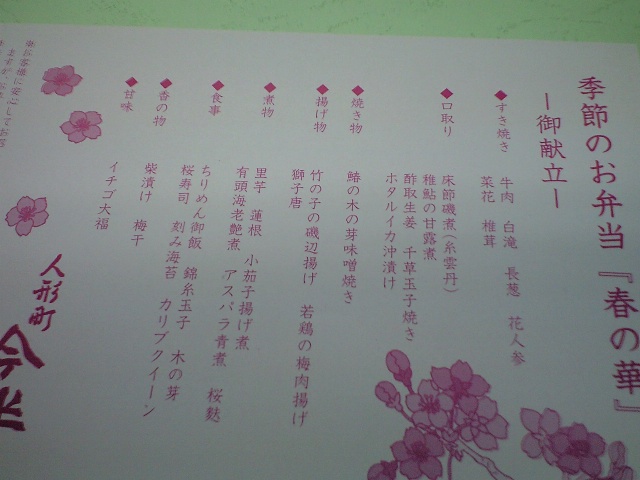 季節のお弁当『春の華』
―御献立―
◆すき焼き 牛肉 白滝 長葱 花人参
菜花 椎茸
◆口取り 床節磯煮(糸雲丹)
稚鮎の甘露煮
酢取生姜 千草玉子焼き
ホタルイカ沖漬け
◆焼き物 鰆の木の芽味噌焼き
◆揚げ物 竹の子の磯辺揚げ 若鶏の梅肉揚げ
獅子唐
◆煮物 里芋 蓮根 小茄子揚げ煮
有頭海老艶煮 アスパラ青煮 桜麩
◆食事 ちりめん御飯 錦糸玉子 木の芽
桜寿司 刻み海苔 カリブクイーン
◆香の物 柴漬け 梅干
◆甘味 イチゴ大福
人形町 今半